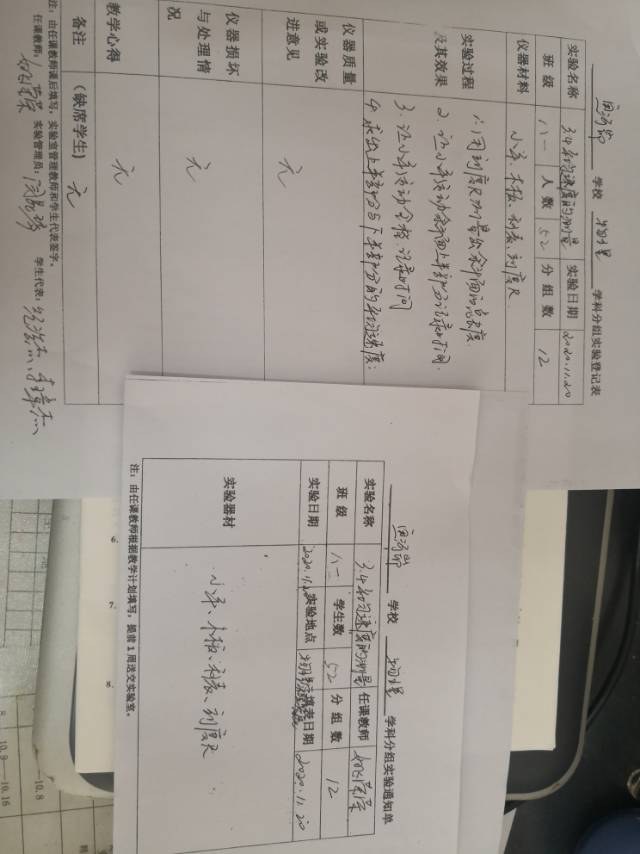 学校 物理 学科分组实验登记表
实验名称 3.4平均速度的测量 实验日期 2020.11.20
班级 八一 人数 52 分组数 12
仪器材料 小车、木板、秒表、刻度尺
实验过程及其效果
1.用刻度尺测量出斜面的总长度
2.让小车运动斜面上半部分记录时间.
3.让小车运动全程,记录时间
4.求出上半部分与下半部分的平均速度.
仪器质量或实验改进意见 无
仪器损坏与处理情况 无
教学心得 无
备注 (缺席学生) 无
注:由任课教师课后填写,实验室管理教师和学生代表签字。
任课教师: 实验管理员: 学生代表:
学校 物理 学科分组实验通知单
实验名称 3.4平均速度的测量 任课教师
班级 八一 学生数 52 分组数 12
实验日期 2020.11.20 实验地点 填表日期 2020.11.20
实验器材 小车、木板、秒表、刻度尺
注:由任课教师根据教学计划填写,提前1周送交实验室。
6.
7.
8.
10.8
8 10.9—10.16